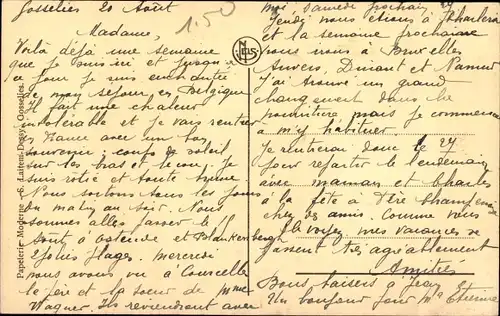 Gosselies 20 Août
1.50
Madame,
Voilà déjà une semaine
que je suis ici et jusqu'à
ce jour je suis enchantée
de mon séjour en Belgique
Il fait une chaleur
intolérable et je vais rentrer
en France avec un bon
souvenir, coups de soleil
sur les bras et le cou, je
suis rôtie et toute brune
Nous sortons tous les jours
du matin au soir. Nous
sommes allés passer le
15 août à Ostende et Blankenberghe
2 jolies plages. mercredi
nous avons vu à Courcelle
le père et la soeur de Mme
Wagner. Ils reviendront avec
moi, samedi prochain 27
Jeudi nous étions à Charleroi
et la semaine prochaine
nous irons à Bruxelles
Anvers, Dinant et Namur
J'ai trouvé un grand
changement dans la
nourriture mais je commence
à m'y habituer
Je rentrerai donc le 27
pour repartir le lendemain
avec maman et Charles
à la fête à
chez des amis. Comme vous
le voyez mes vacances se
passent très agréablement
Amitiés
Bons baisers à Jean
Un bonjour pour Mr Etienne
Papeterie Moderne C. Laitem-Desoy, Gosselies.